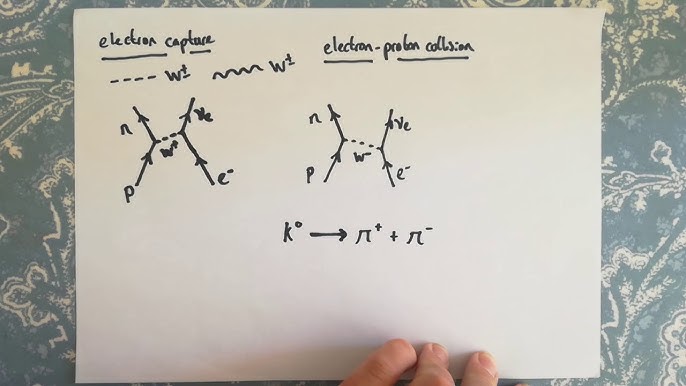 electron capture
electron-proton collision
---- W± ~~~~ W±
n νe
W+
p e-
n νe
W-
p e-
K⁰ → π⁺ + π⁻